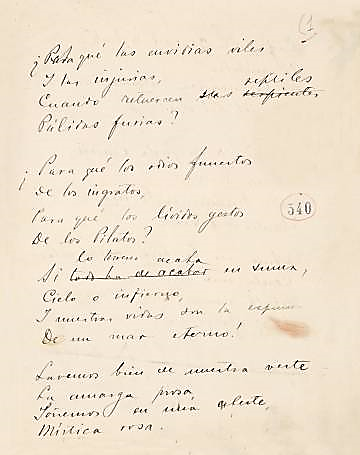 (1
¡Para qué las envidias viles
I las injurias,
reptiles
Cuando retuercen sus serpientes
Pálidas furias?
¡Para qué los odios funestos
De los ingratos,
Para qué los lívidos gestos
De los Pilatos?
540
Lo terreno acaba
Si todo ha de acabar en suma,
Cielo e infierno,
I nuestras vidas son la espuma
De un mar eterno!
Lavemos bien de nuestra veste
La amarga prosa,
Soñemos en una celeste,
Mística rosa.